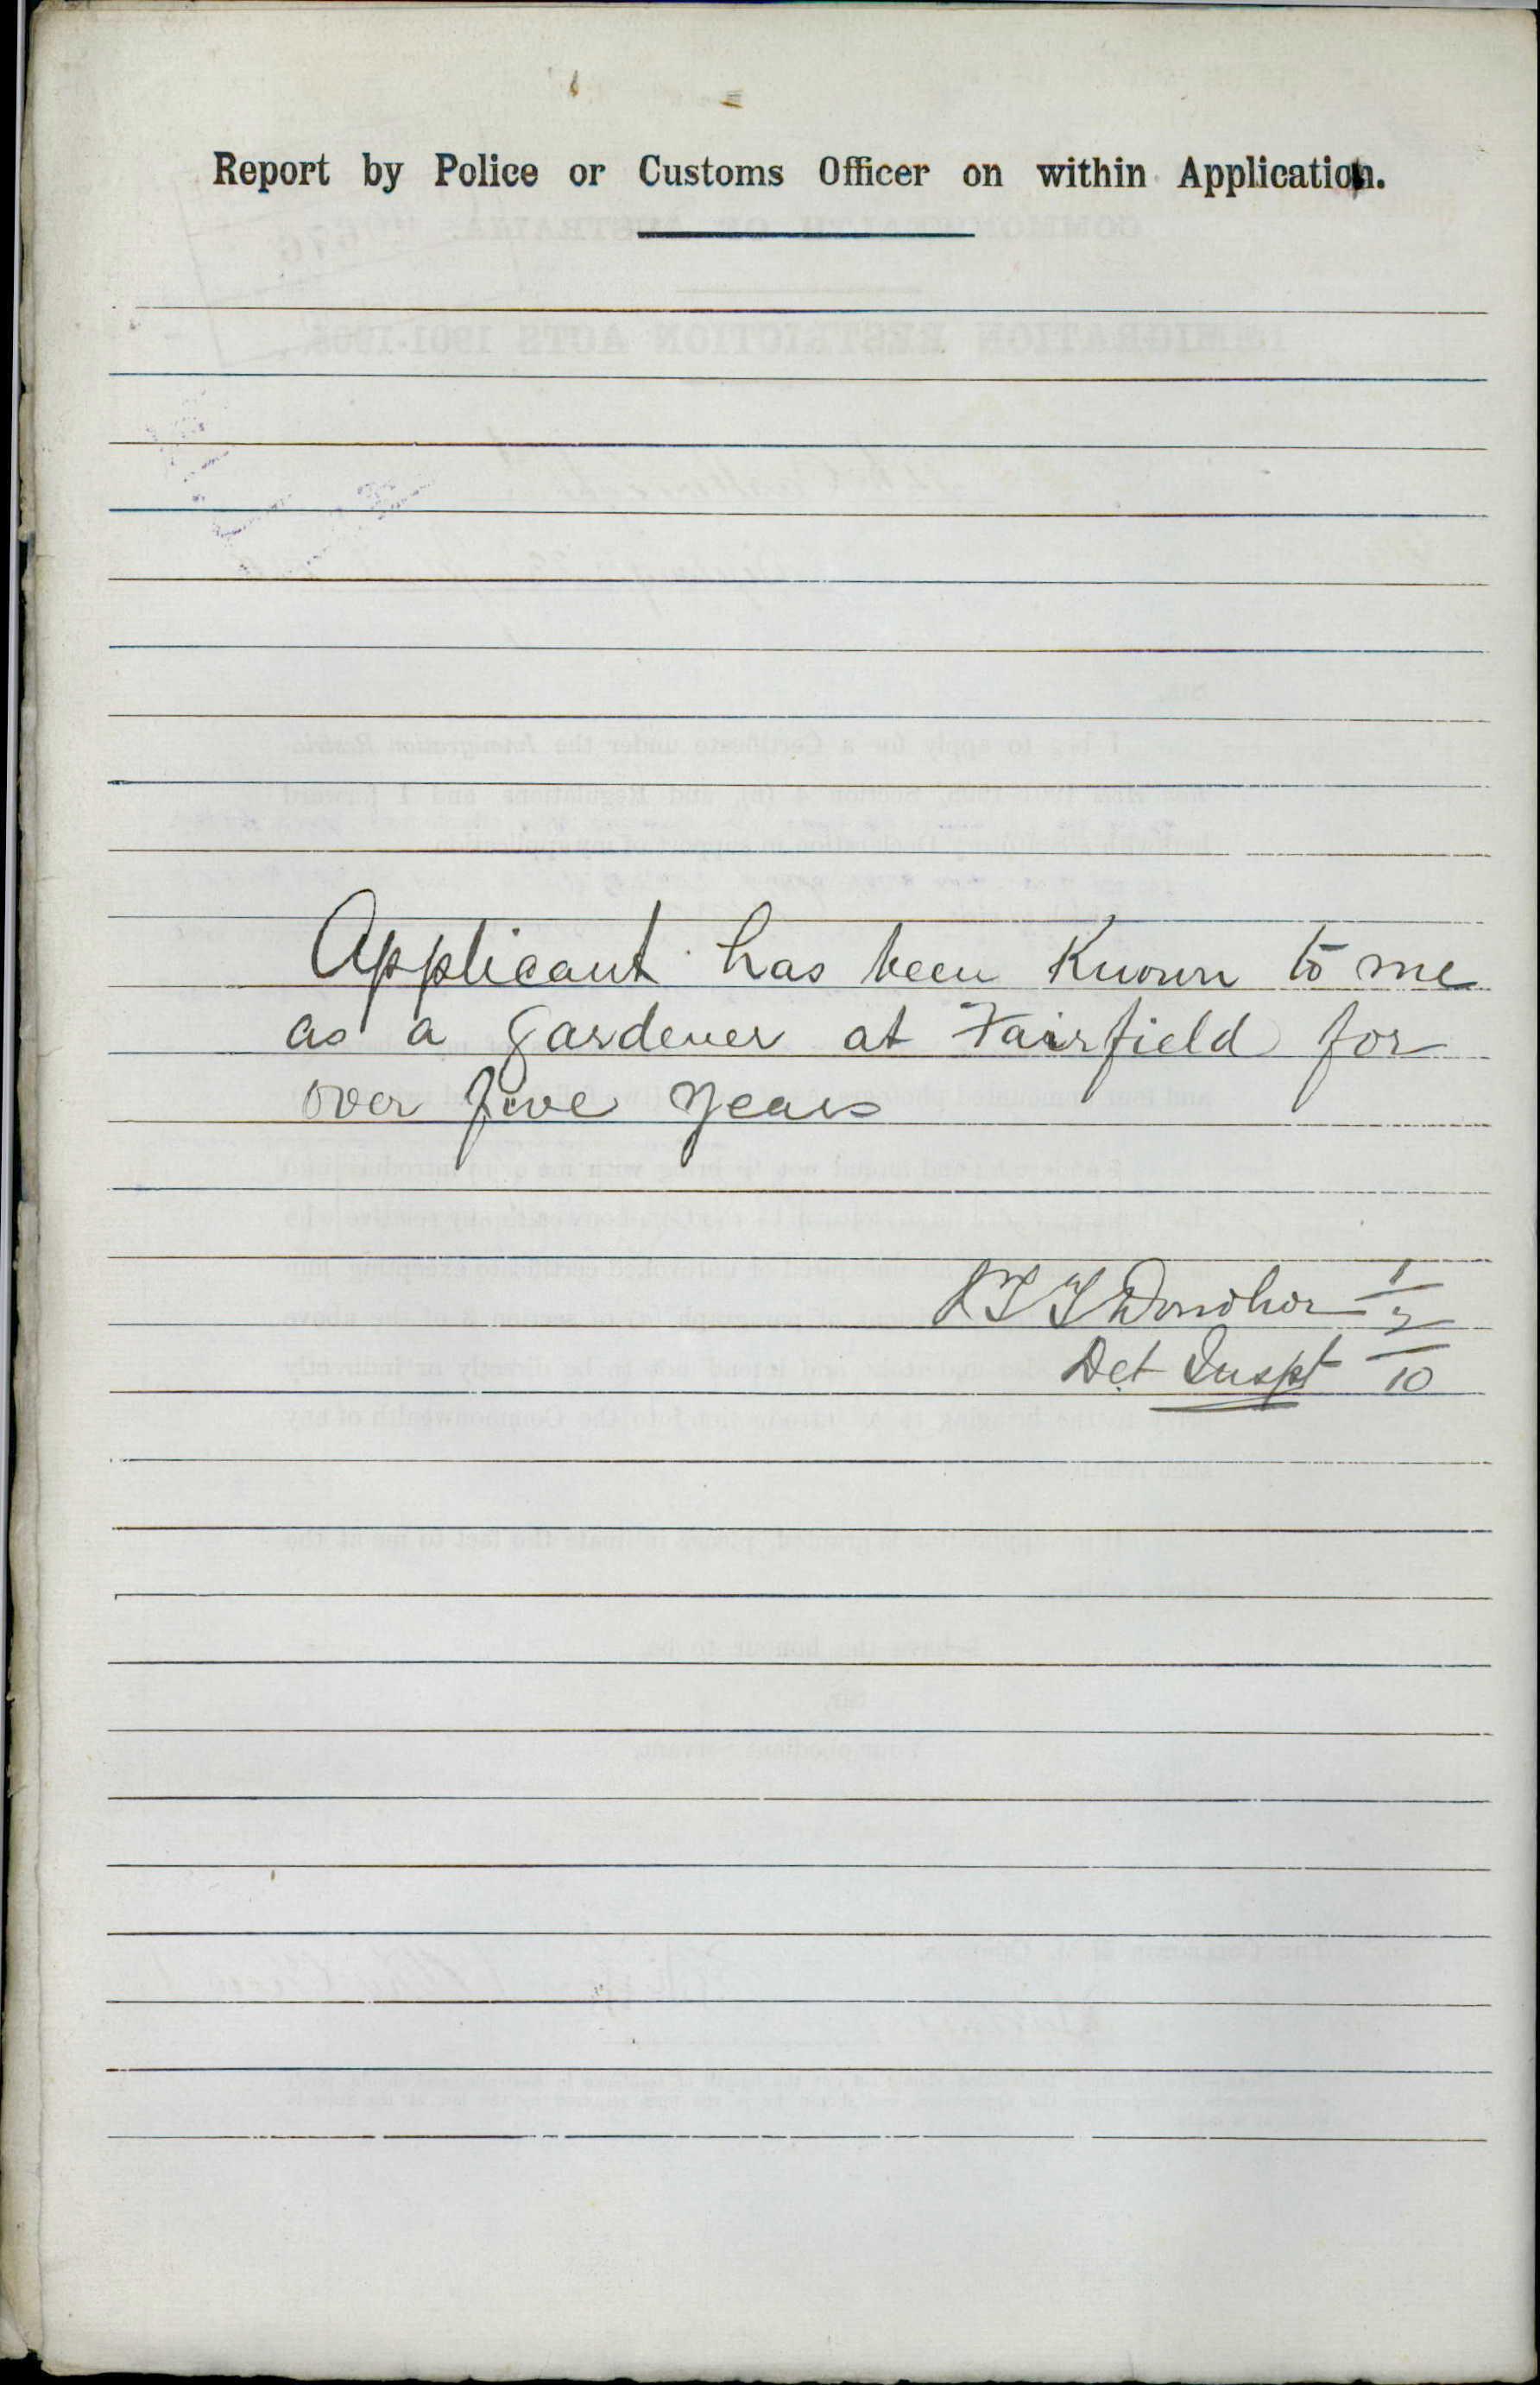 Report by Police or Customs Officer on within Application.
Applicant has been Known to me
as a gardener at Fairfield for
over five years
Donohoe 1/7/10
Det Inspt